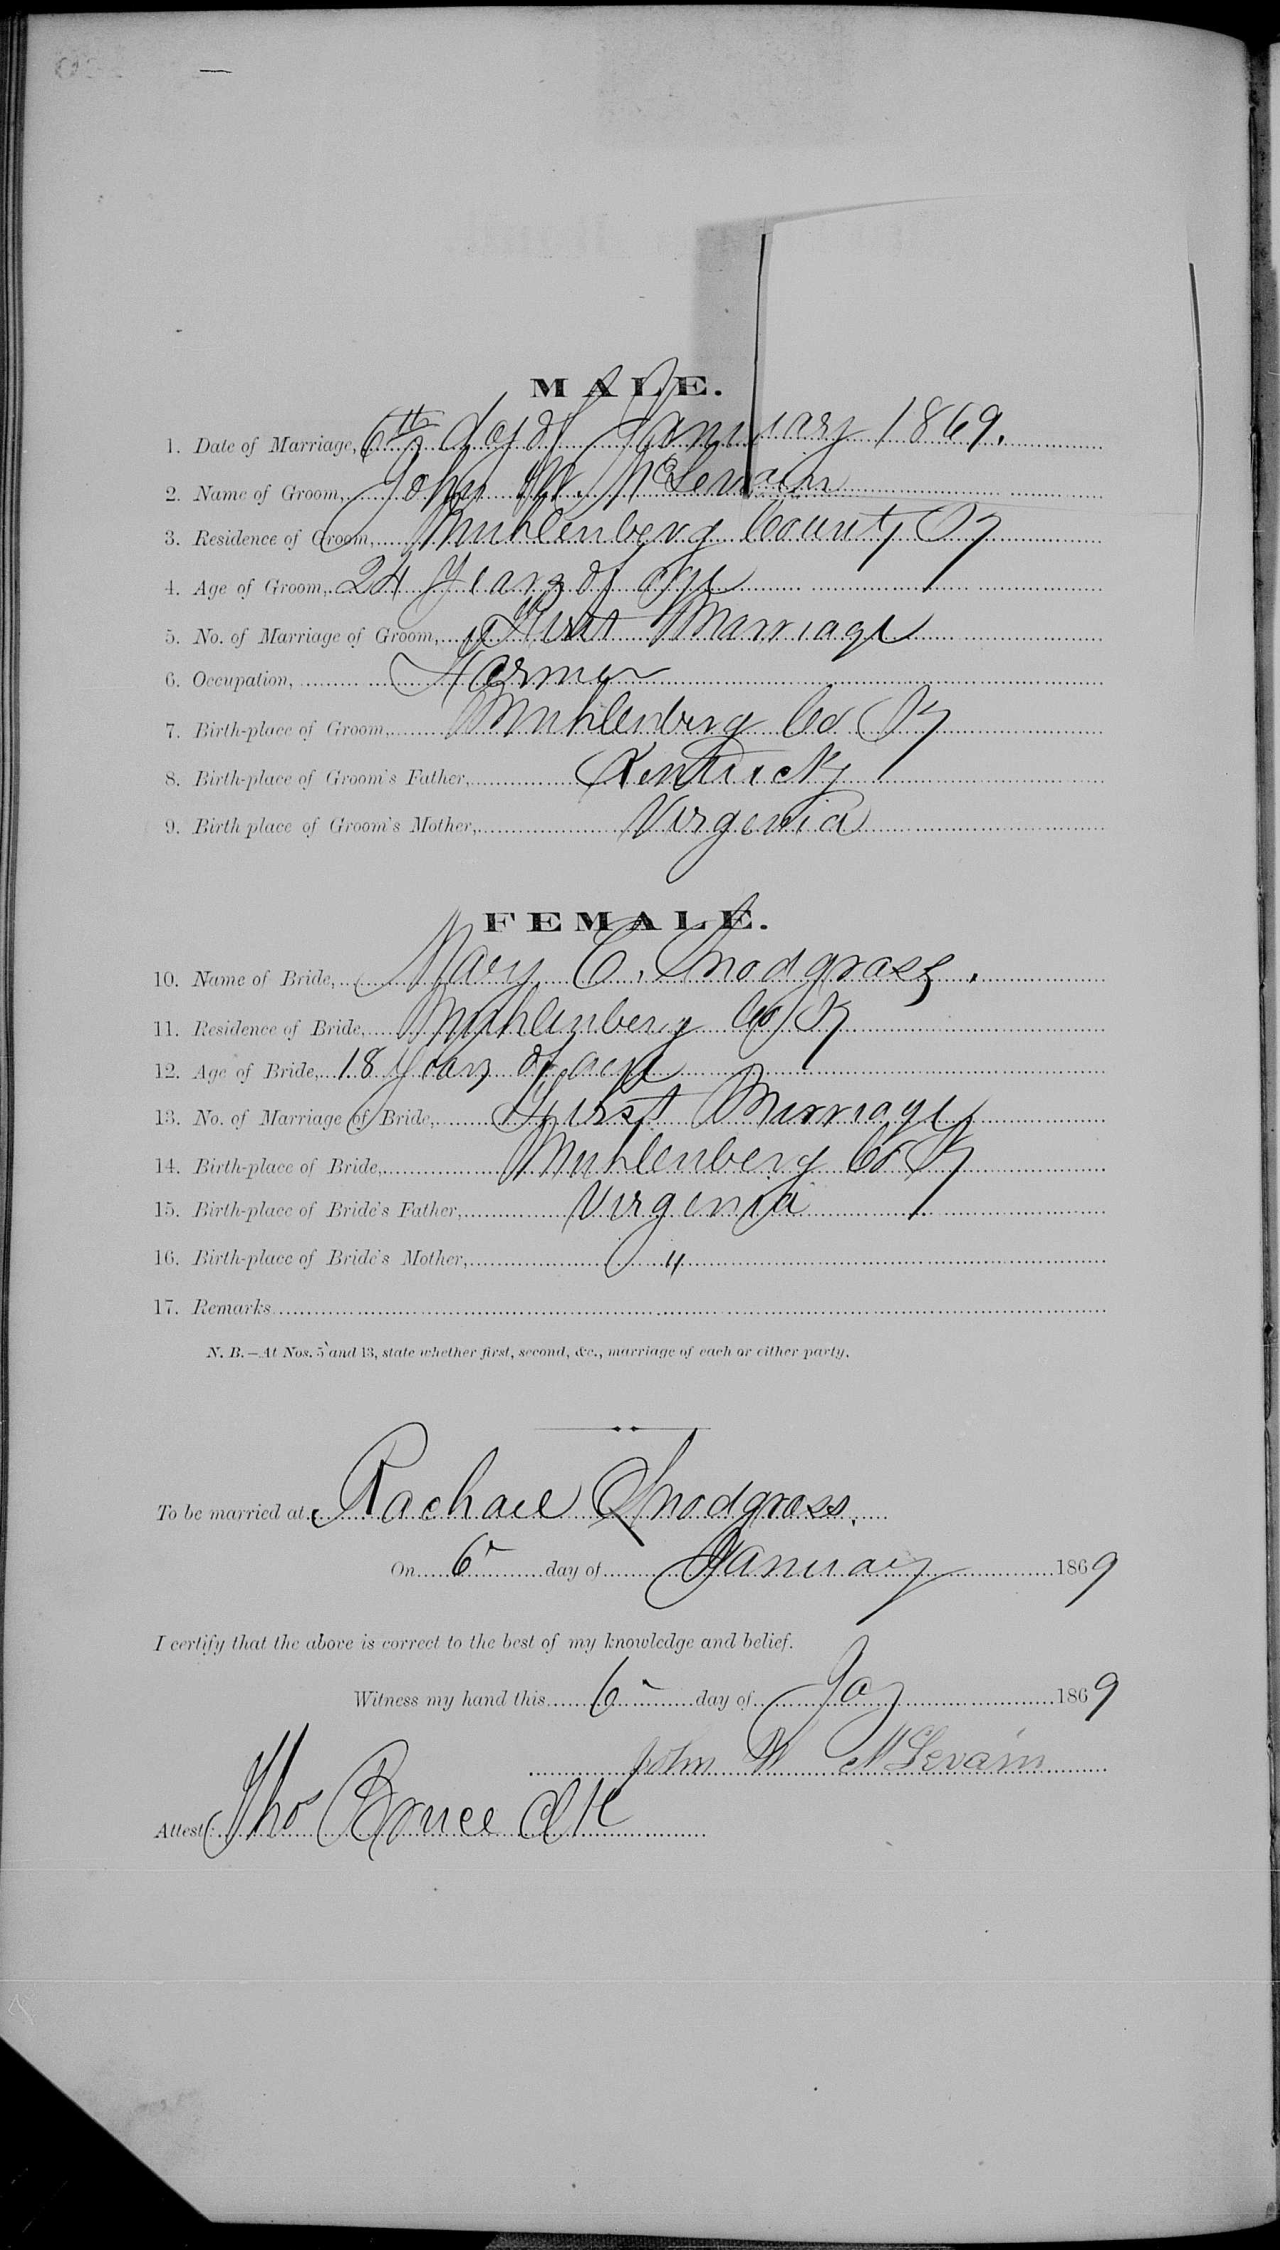 MALE.
1. Date of Marriage, 6th day of January 1869.
2. Name of Groom, John W. McLevain
3. Residence of Groom, Muhlenberg County Ky
4. Age of Groom, 24 years of age
5. No. of Marriage of Groom, First Marriage
6. Occupation, Farmer
7. Birth-place of Groom, Muhlenberg Co Ky
8. Birth-place of Groom's Father, Kentucky
9. Birth place of Groom's Mother, Virginia
FEMALE.
10. Name of Bride, Mary C. Snodgrass.
11. Residence of Bride, Muhlenberg Co Ky
12. Age of Bride, 18 years of age
13. No. of Marriage of Bride, First Marriage
14. Birth-place of Bride, Muhlenberg Co Ky
15. Birth-place of Bride's Father, Virginia
16. Birth-place of Bride's Mother, "
17. Remarks
N. B.—At Nos. 5 and 13, state whether first, second, &c., marriage of each or either party.
To be married at Rachael Snodgrass.
On 6 day of January 1869
I certify that the above is correct to the best of my knowledge and belief.
Witness my hand this 6 day of Jay 1869
John W McLevain
Attest: Thos Bruce Clk